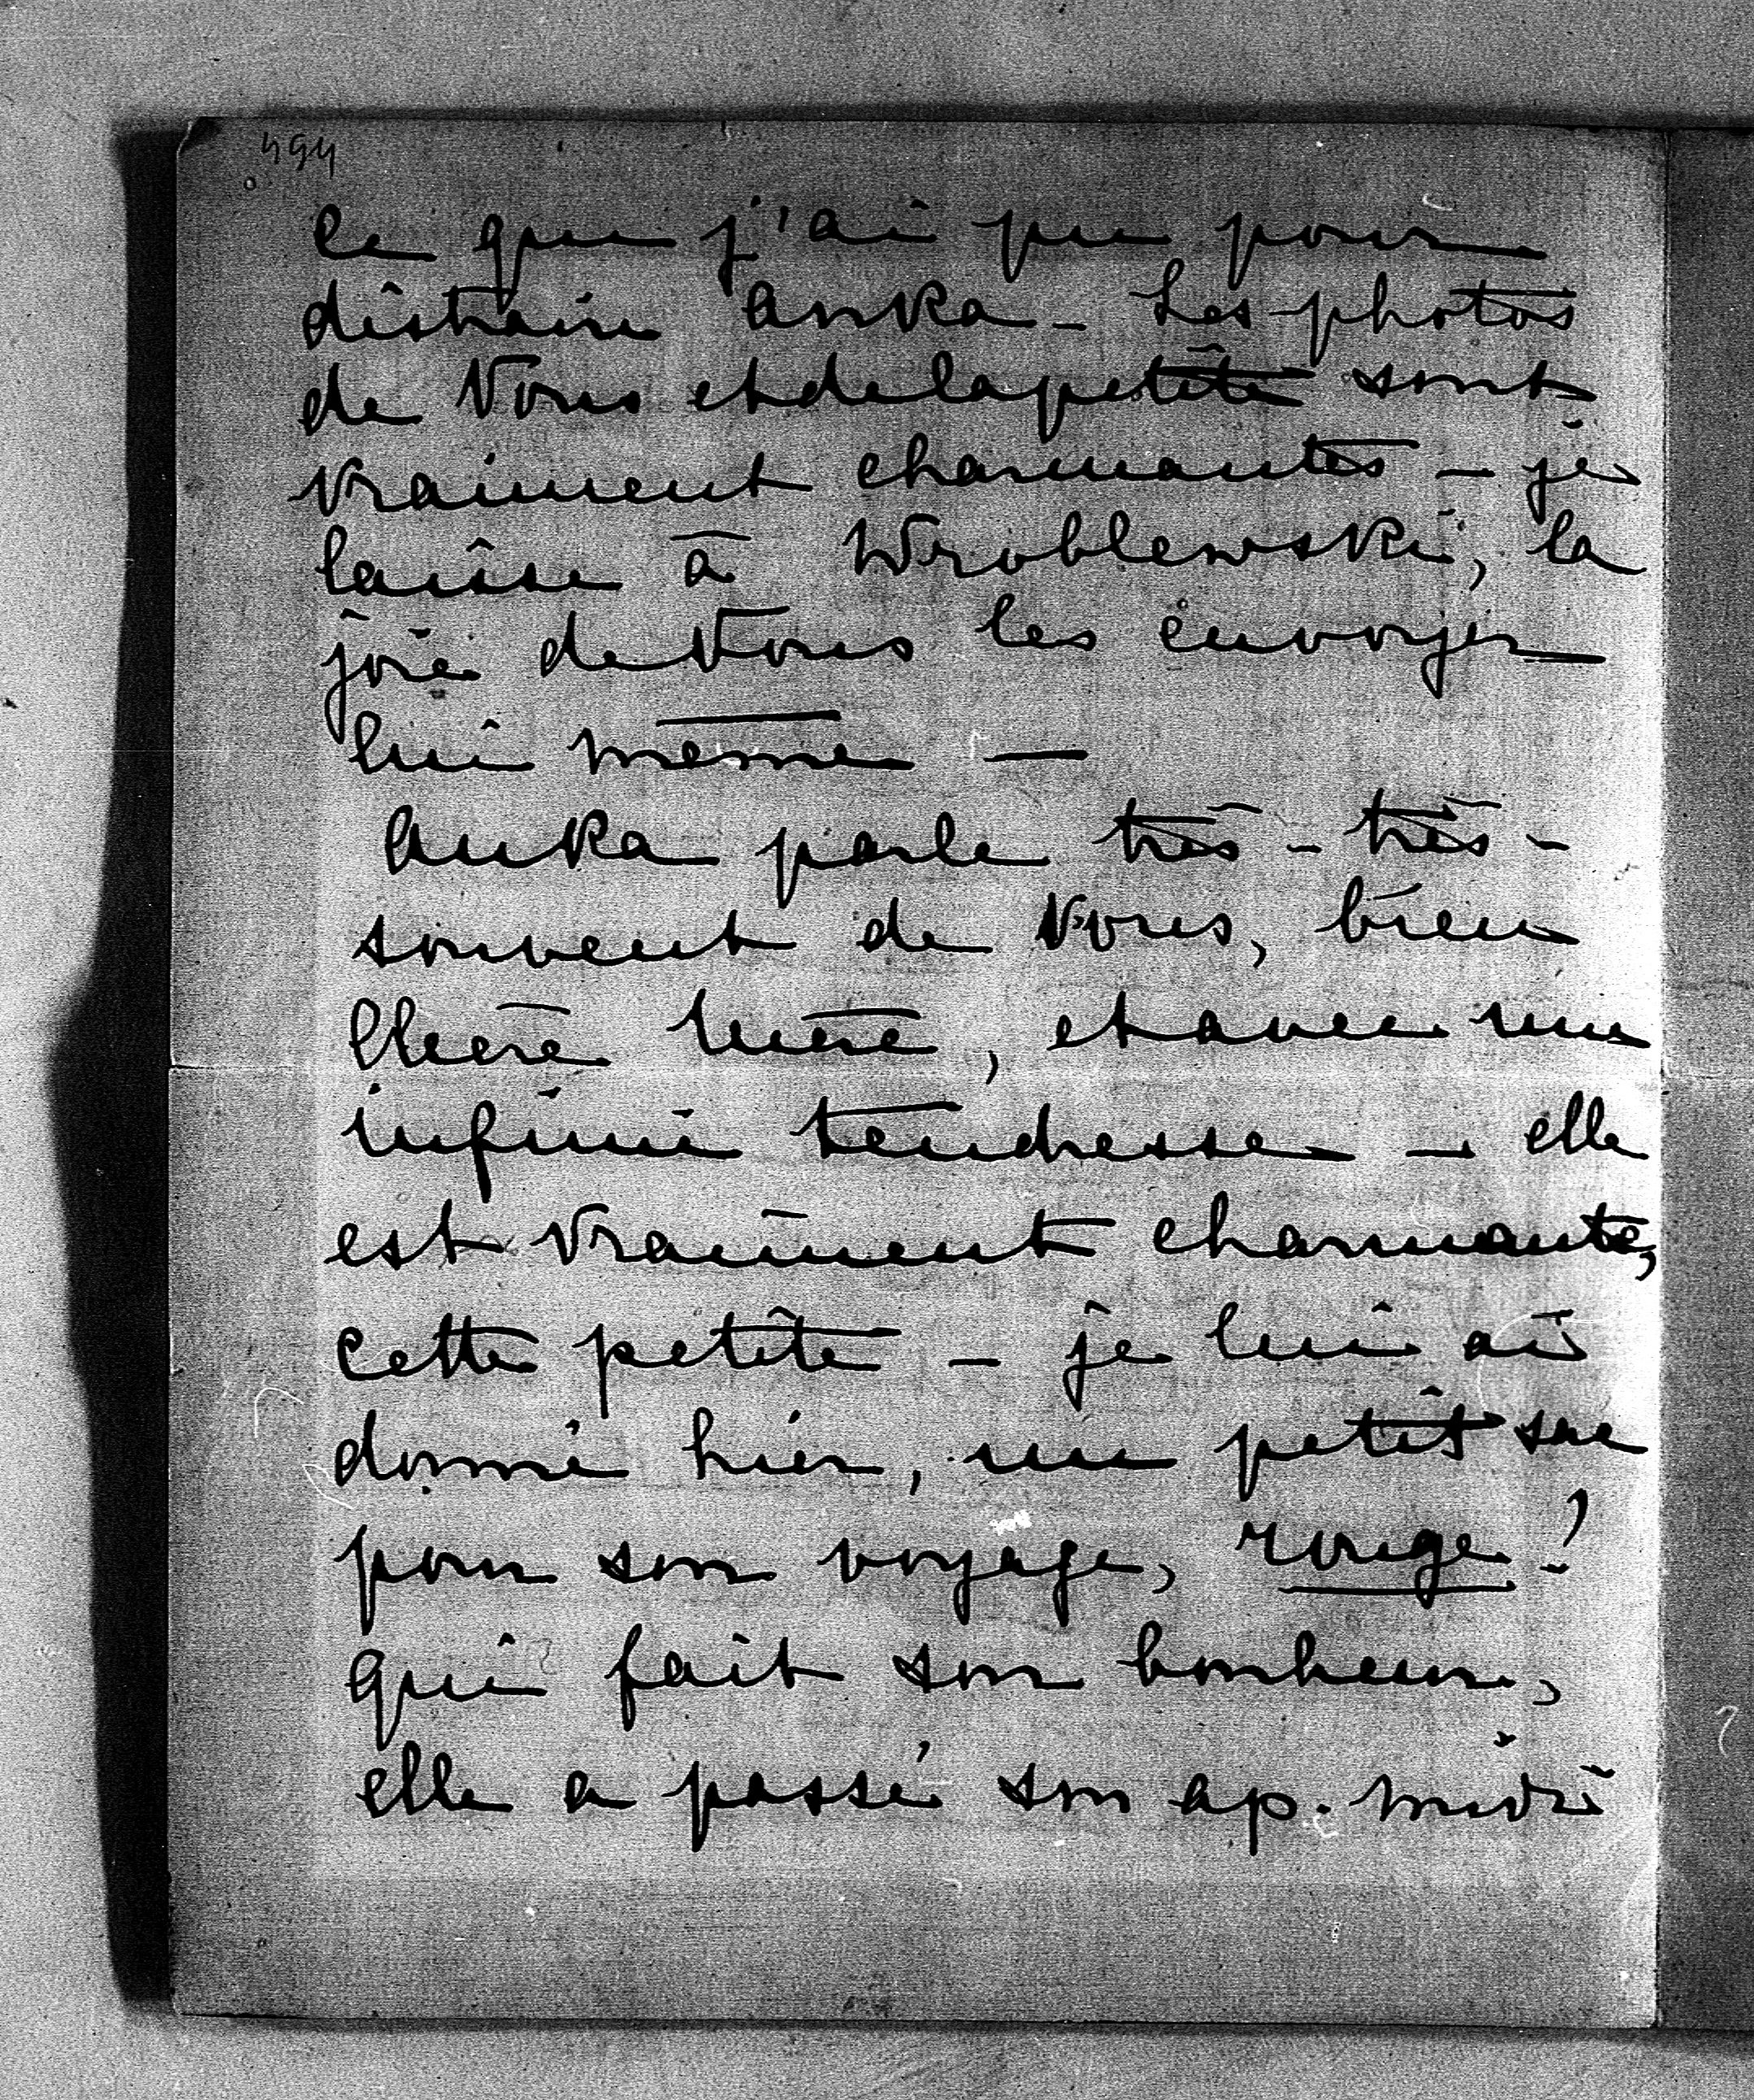 494
ce que j'ai pu pour
distraire Anka – Les photos
de Vous et de la petite sont
vraiment charmantes – je
laisse à Wroblewski, la
joie de Vous les envoyer
lui même –
Anka parle très – très –
souvent de Vous, bien
Chère Mère, et avec une
infinie tendresse – elle
est vraiment charmante,
cette petite – je lui ai
donné hier, un petit sac
pour son voyage, rouge!
qui fait son bonheur,
elle a passé son ap. midi